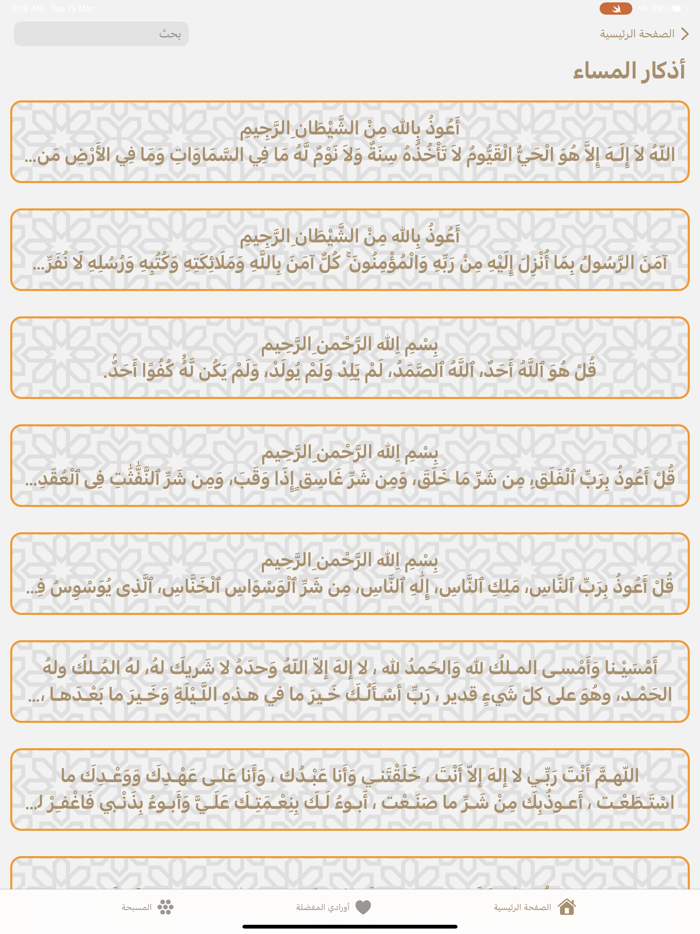 الصفحة الرئيسية
بحث
أذكار المساء
أَعُوذُ بِاللهِ مِنْ الشَّيْطَانِ الرَّجِيمِ
اللّهُ لاَ إِلَـهَ إِلاَّ هُوَ الْحَيُّ الْقَيُّومُ لاَ تَأْخُذُهُ سِنَةٌ وَلاَ نَوْمٌ لَّهُ مَا فِي السَّمَاوَاتِ وَمَا فِي الأَرْضِ مَن...
أَعُوذُ بِاللهِ مِنْ الشَّيْطَانِ الرَّجِيمِ
آمَنَ الرَّسُولُ بِمَا أُنْزِلَ إِلَيْهِ مِنْ رَبِّهِ وَالْمُؤْمِنُونَ ۚ كُلٌّ آمَنَ بِاللَّهِ وَمَلَائِكَتِهِ وَكُتُبِهِ وَرُسُلِهِ لَا نُفَرِّ...
بِسْمِ اللهِ الرَّحْمنِ الرَّحِيم
قُلْ هُوَ ٱللَّهُ أَحَدٌ، ٱللَّهُ ٱلصَّمَدُ، لَمْ يَلِدْ وَلَمْ يُولَدْ، وَلَمْ يَكُن لَّهُۥ كُفُوًا أَحَدٌۢ.
بِسْمِ اللهِ الرَّحْمنِ الرَّحِيم
قُلْ أَعُوذُ بِرَبِّ ٱلْفَلَقِ، مِن شَرِّ مَا خَلَقَ، وَمِن شَرِّ غَاسِقٍ إِذَا وَقَبَ، وَمِن شَرِّ ٱلنَّفَّٰثَٰتِ فِى ٱلْعُقَدِ...
بِسْمِ اللهِ الرَّحْمنِ الرَّحِيم
قُلْ أَعُوذُ بِرَبِّ ٱلنَّاسِ، مَلِكِ ٱلنَّاسِ، إِلَٰهِ ٱلنَّاسِ، مِن شَرِّ ٱلْوَسْوَاسِ ٱلْخَنَّاسِ، ٱلَّذِى يُوَسْوِسُ فِـ...
أَمْسَيْـنا وَأَمْسـى المـلكُ لله وَالحَمدُ لله ، لا إلهَ إلاّ اللّهُ وَحدَهُ لا شَريكَ لهُ، لهُ المُـلكُ ولهُ
الحَمْـد، وهُوَ على كلّ شَيءٍ قدير ، رَبِّ أسْـأَلُـكَ خَـيرَ ما في هـذهِ اللَّـيْلَةِ وَخَـيرَ ما بَعْـدَهـا ،...
اللّهـمَّ أَنْتَ رَبِّـي لا إلهَ إلاّ أَنْتَ ، خَلَقْتَنـي وَأَنا عَبْـدُك ، وَأَنا عَلـى عَهْـدِكَ وَوَعْـدِكَ ما
اسْتَـطَعْـت ، أَعـوذُبِكَ مِنْ شَـرِّ ما صَنَـعْت ، أَبـوءُ لَـكَ بِنِعْـمَتِـكَ عَلَـيَّ وَأَبـوءُ بِذَنْـبي فَاغْفِـرْ لـ...
الصفحة الرئيسية
أورادي المفضلة
المسبحة